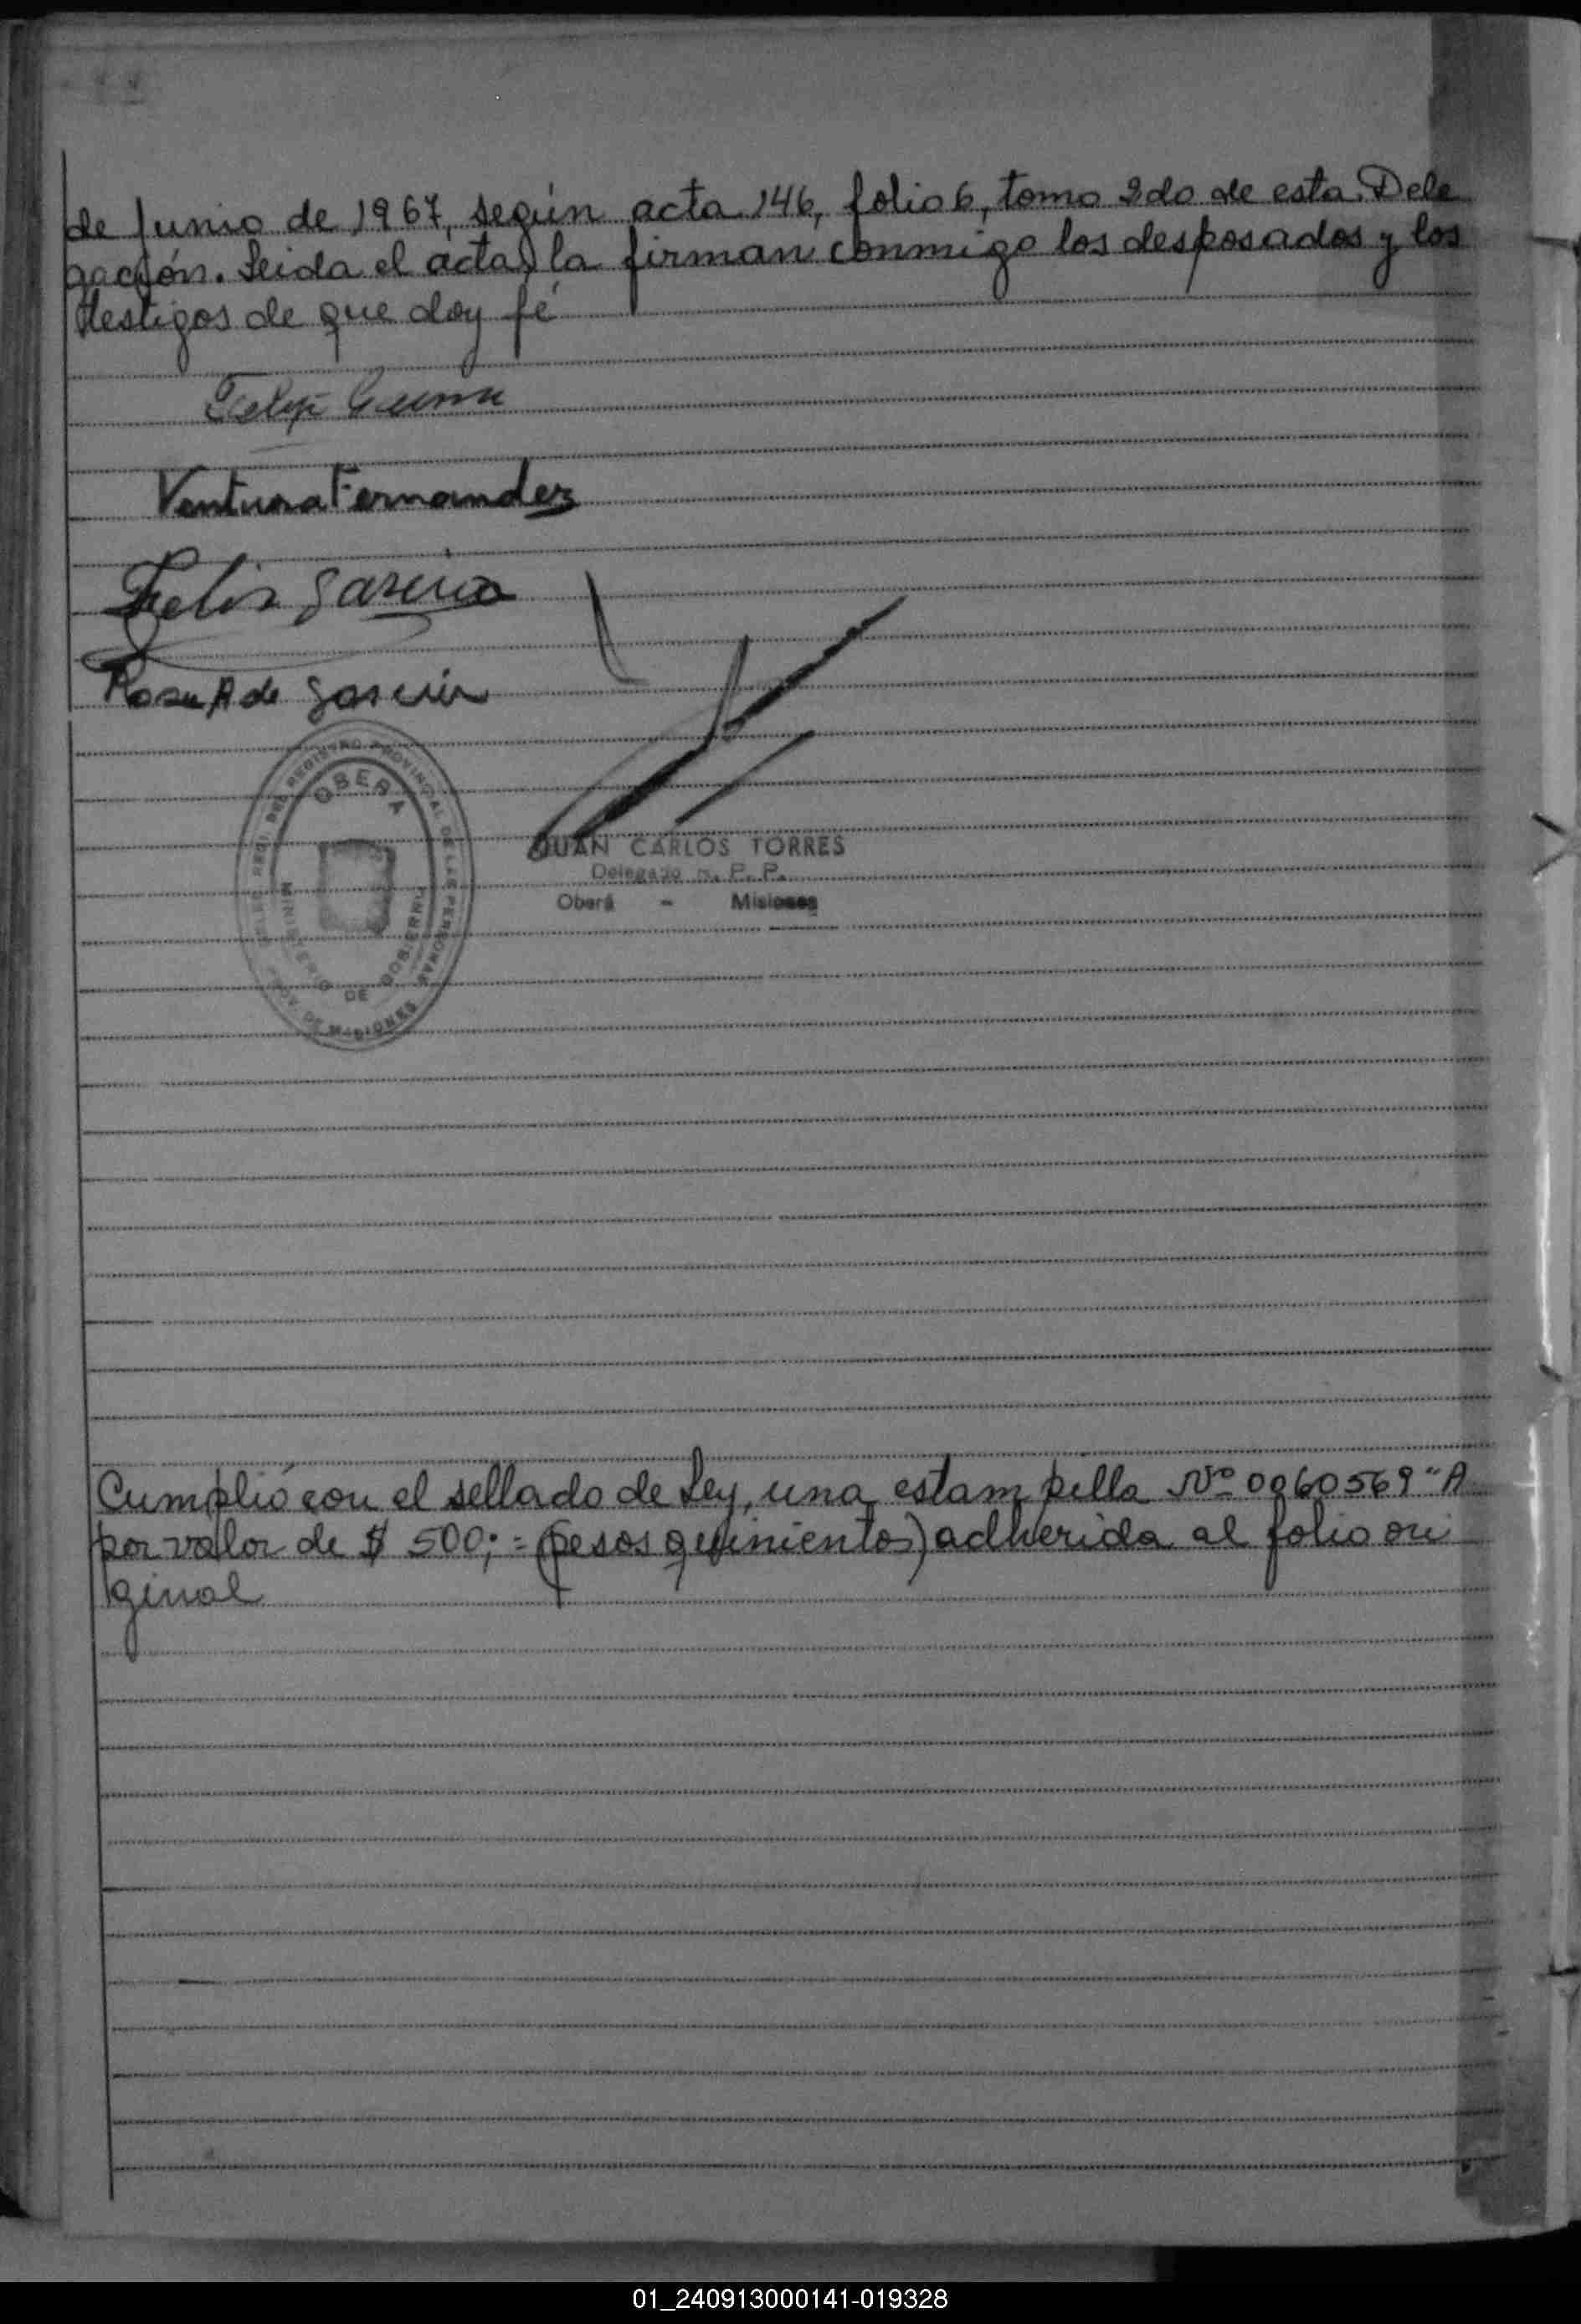 de Junio de 1967, según acta 146, folio 6, tomo 2do de esta Dele
gación. Leida el acta, la firman conmigo los desposados y los
testigos de que doy fé
Ventura Fernandez
Felix Garcia
Rosa A de Garcia
REGISTRO PROVINCIAL DE LAS PERSONAS
OBERA
MINISTERIO DE GOBIERNO
DE MISIONES
JUAN CARLOS TORRES
Delegado R. P. P.
Oberá - Misiones
Cumplió con el sellado de Ley, una estampilla Nº 0060569 "A
por valor de $ 500;= (pesos quinientos) adherida al folio ori
ginal
01_240913000141-019328